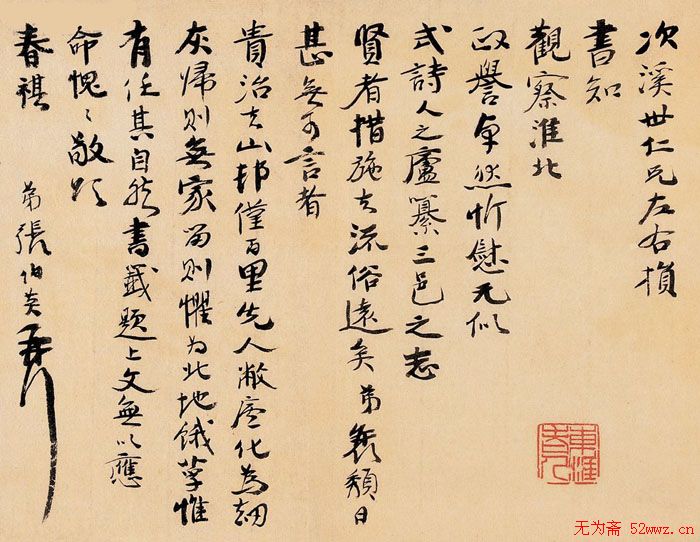 次溪世仁兄左右損
書知
觀察淮北
政譽卓然忻慰无似
式詩人之廬纂三邑之志
賢者措施去流俗遠矣弟衰頹日
甚無可言者
貴治去山邨僅百里先人敝廬化為劫
灰歸則無家留則懼為此地餓莩惟
有任其自然書籤題上文無以應
命愧〻敬頌
春祺
弟張伯英
无为斋 52wwz.cn